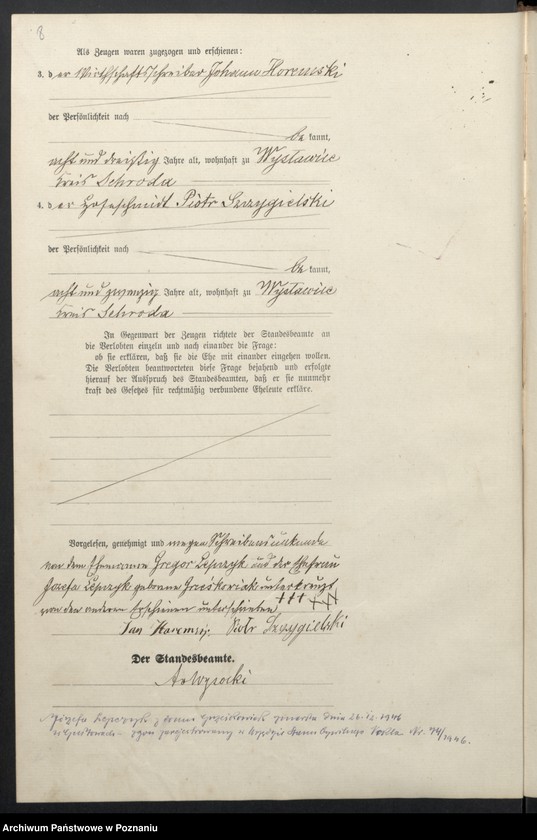 8
Als Zeugen waren zugezogen und erschienen:
3. der Wirthschaftsschreiber Johann Haremski
der Persönlichkeit nach
be kannt,
acht und dreißig Jahre alt, wohnhaft zu Wysławice
Kreis Schroda
4. der Hofschmidt Piotr Szzygielski
der Persönlichkeit nach
be kannt,
acht und zwanzig Jahre alt, wohnhaft zu Wysławice
Kreis Schroda
In Gegenwart der Zeugen richtete der Standesbeamte an
die Verlobten einzeln und nach einander die Frage:
ob sie erklären, daß sie die Ehe mit einander eingehen wollen.
Die Verlobten beantworteten diese Frage bejahend und erfolgte
hierauf der Ausspruch des Standesbeamten, daß er sie nunmehr
kraft des Gesetzes für rechtmäßig verbundene Eheleute erkläre.
Vorgelesen, genehmigt und wegen Schreibensunkunde
von dem Ehemanne Gregor Lepczyk und der Ehefrau
Josefa Lepczyk geborene unterkreuzt
von den anderen Erschienenen unterschrieben
+++ +++
Jan Haremski, Piotr Szzygielski
Der Standesbeamte.
Wysocki
Józefa Lepczyk z domu zmarła dnia 26.12.1946
zgon zarejestrowany w Stanu Cywilnego Nr. 74/1946.
Archiwum Państwowe w Poznaniu